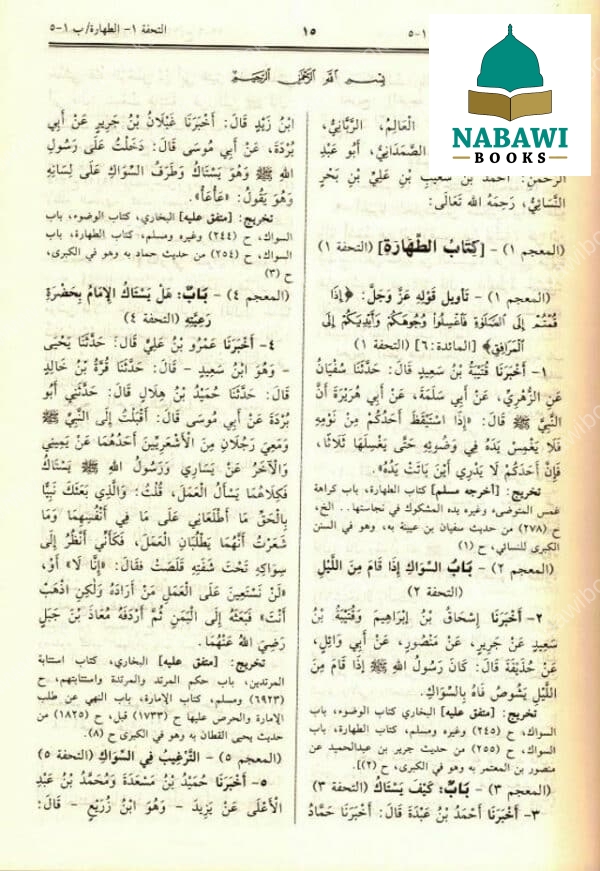 التحفة ١- الطهارة/ ب ١-٥
١٥
١-٥
NABAWI
BOOKS
بِسْمِ اللهِ الرَّحْمٰنِ الرَّحِيمِ
الْعَالِمُ، الرَّبَّانِيُّ،
الصَّمَدَانِيُّ، أَبُو عَبْدِ
الرَّحْمٰنِ: أَحْمَدُ بْنُ شُعَيْبِ بْنِ عَلِيِّ بْنِ بَحْرٍ
النَّسَائِيُّ، رَحِمَهُ الله تَعَالَى:
(المعجم ١) - [كِتَابُ الطَّهَارَةِ] (التحفة ١)
(المعجم ١) - تَأوِيل قَوْلِهِ عَزَّ وَجَلَّ: ﴿إِذَا
قُمْتُمْ إِلَى الصَّلَوٰةِ فَاغْسِلُوا وُجُوهَكُمْ وَأَيْدِيَكُمْ إِلَى
الْمَرَافِقِ﴾ [المائدة:٦] (التحفة ١)
١- أَخْبَرَنَا قُتَيْبَةُ بْنُ سَعِيدٍ قَالَ: حَدَّثَنَا سُفْيَانُ
عَنِ الزُّهْرِيِّ، عَنْ أَبِي سَلَمَةَ، عَنْ أَبِي هُرَيْرَةَ أَنَّ
النَّبِيَّ ﷺ قَالَ: «إِذَا اسْتَيْقَظَ أَحَدُكُمْ مِنْ نَوْمِهِ
فَلَا يَغْمِسْ يَدَهُ فِي وَضُوئِهِ حَتَّى يَغْسِلَهَا ثَلَاثًا،
فَإِنَّ أَحَدَكُمْ لَا يَدْرِي أَيْنَ بَاتَتْ يَدُهُ».
تخريج: [أخرجه مسلم] كتاب الطهارة، باب كراهة
غمس المتوضىء وغيره يده المشكوك في نجاستها.. الخ،
ح (٢٧٨) من حديث سفيان بن عيينة به، وهو في السنن
الكبرى للنسائي، ح (١)
(المعجم ٢) - بَابُ السِّوَاكِ إِذَا قَامَ مِنَ اللَّيْلِ
(التحفة ٢)
٢- أَخْبَرَنَا إِسْحَاقُ بْنُ إِبْرَاهِيمَ وَقُتَيْبَةُ بْنُ
سَعِيدٍ عَنْ جَرِيرٍ، عَنْ مَنْصُورٍ، عَنْ أَبِي وَائِلٍ،
عَنْ حُذَيْفَةَ قَالَ: كَانَ رَسُولُ اللهِ ﷺ إِذَا قَامَ مِنَ
اللَّيْلِ يَشُوصُ فَاهُ بِالسِّوَاكِ.
تخريج: [متفق عليه] البخاري كتاب الوضوء، باب
السواك، ح (٢٤٥) وغيره ومسلم، كتاب الطهارة، باب
السواك، ح (٢٥٥) من حديث جرير بن عبدالحميد عن
منصور بن المعتمر به وهو في الكبرى، ح (٢)].
(المعجم ٣) - بَابٌ: كَيْفَ يَسْتَاكُ (التحفة ٣)
٣- أَخْبَرَنَا أَحْمَدُ بْنُ عَبْدَةَ قَالَ: أَخْبَرَنَا حَمَّادُ
ابْنُ زَيْدٍ قَالَ: أَخْبَرَنَا غَيْلَانُ بْنُ جَرِيرٍ عَنْ أَبِي
بُرْدَةَ، عَنْ أَبِي مُوسَى قَالَ: دَخَلْتُ عَلَى رَسُولِ
اللهِ ﷺ وَهُوَ يَسْتَاكُ وَطَرَفُ السِّوَاكِ عَلَى لِسَانِهِ
وَهُوَ يَقُولُ: «عَأْعَأْ».
تخريج: [متفق عليه] البخاري، كتاب الوضوء، باب
السواك، ح (٢٤٤) وغيره ومسلم، كتاب الطهارة، باب
السواك، ح (٢٥٤) من حديث حماد به وهو في الكبرى،
ح (٣)
(المعجم ٤) - بَابٌ: هَلْ يَسْتَاكُ الْإِمَامُ بِحَضْرَةِ
رَعِيَّتِهِ (التحفة ٤)
٤- أَخْبَرَنَا عَمْرُو بْنُ عَلِيٍّ قَالَ: حَدَّثَنَا يَحْيَى
- وَهُوَ ابْنُ سَعِيدٍ - قَالَ: حَدَّثَنَا قُرَّةُ بْنُ خَالِدٍ
قَالَ: حَدَّثَنَا حُمَيْدُ بْنُ هِلَالٍ قَالَ: حَدَّثَنِي أَبُو
بُرْدَةَ عَنْ أَبِي مُوسَى قَالَ: أَقْبَلْتُ إِلَى النَّبِيِّ ﷺ
وَمَعِيَ رَجُلَانِ مِنَ الْأَشْعَرِيِّينَ أَحَدُهُمَا عَنْ يَمِينِي
وَالْآخَرُ عَنْ يَسَارِي وَرَسُولُ اللهِ ﷺ يَسْتَاكُ
فَكِلَاهُمَا يَسْأَلُ الْعَمَلَ، قُلْتُ: وَالَّذِي بَعَثَكَ نَبِيًّا
بِالْحَقِّ مَا أَطْلَعَانِي عَلَى مَا فِي أَنْفُسِهِمَا وَمَا
شَعَرْتُ أَنَّهُمَا يَطْلُبَانِ الْعَمَلَ، فَكَأَنِّي أَنْظُرُ إِلَى
سِوَاكِهِ تَحْتَ شَفَتِهِ قَلَصَتْ فَقَالَ: «إِنَّا لَا» أَوْ،
«لَنْ نَسْتَعِينَ عَلَى الْعَمَلِ مَنْ أَرَادَهُ وَلٰكِنِ اذْهَبْ
أَنْتَ» فَبَعَثَهُ إِلَى الْيَمَنِ ثُمَّ أَرْدَفَهُ مُعَاذَ بْنَ جَبَلٍ
رَضِيَ اللهُ عَنْهُمَا.
تخريج: [متفق عليه] البخاري، كتاب استتابة
المرتدين، باب حكم المرتد والمرتدة واستتابتهم، ح
(٦٩٢٣) ومسلم، كتاب الإمارة، باب النهي عن طلب
الإمارة والحرص عليها ح (١٧٣٣) قبل، ح (١٨٢٥) من
حديث يحيى القطان به وهو في الكبرى ح (٨).
(المعجم ٥) - التَّرْغِيبُ فِي السِّوَاكِ (التحفة ٥)
٥- أَخْبَرَنَا حُمَيْدُ بْنُ مَسْعَدَةَ وَمُحَمَّدُ بْنُ عَبْدِ
الْأَعْلَى عَنْ يَزِيدَ - وَهُوَ ابْنُ زُرَيْعٍ - قَالَ: